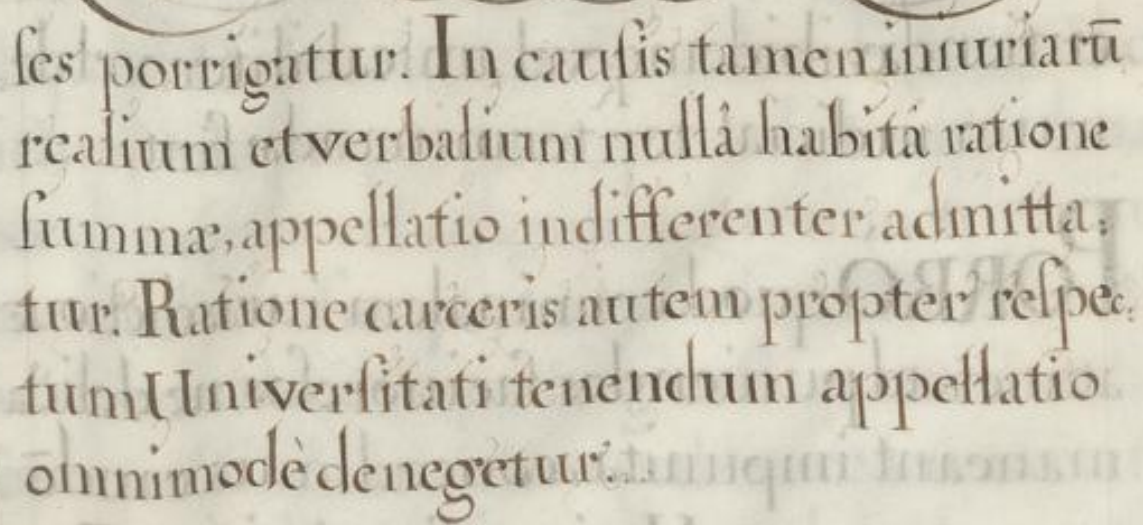 ſes porrigatur. In cauſis tamen iniuriarū
realium et verbalium nullâ habitâ ratione
ſummæ, appellatio indifferenter admitta:
tur. Ratione carceris autem propter reſpec:
tum Univerſitati tenendum appellatio
omnimodè denegetur.